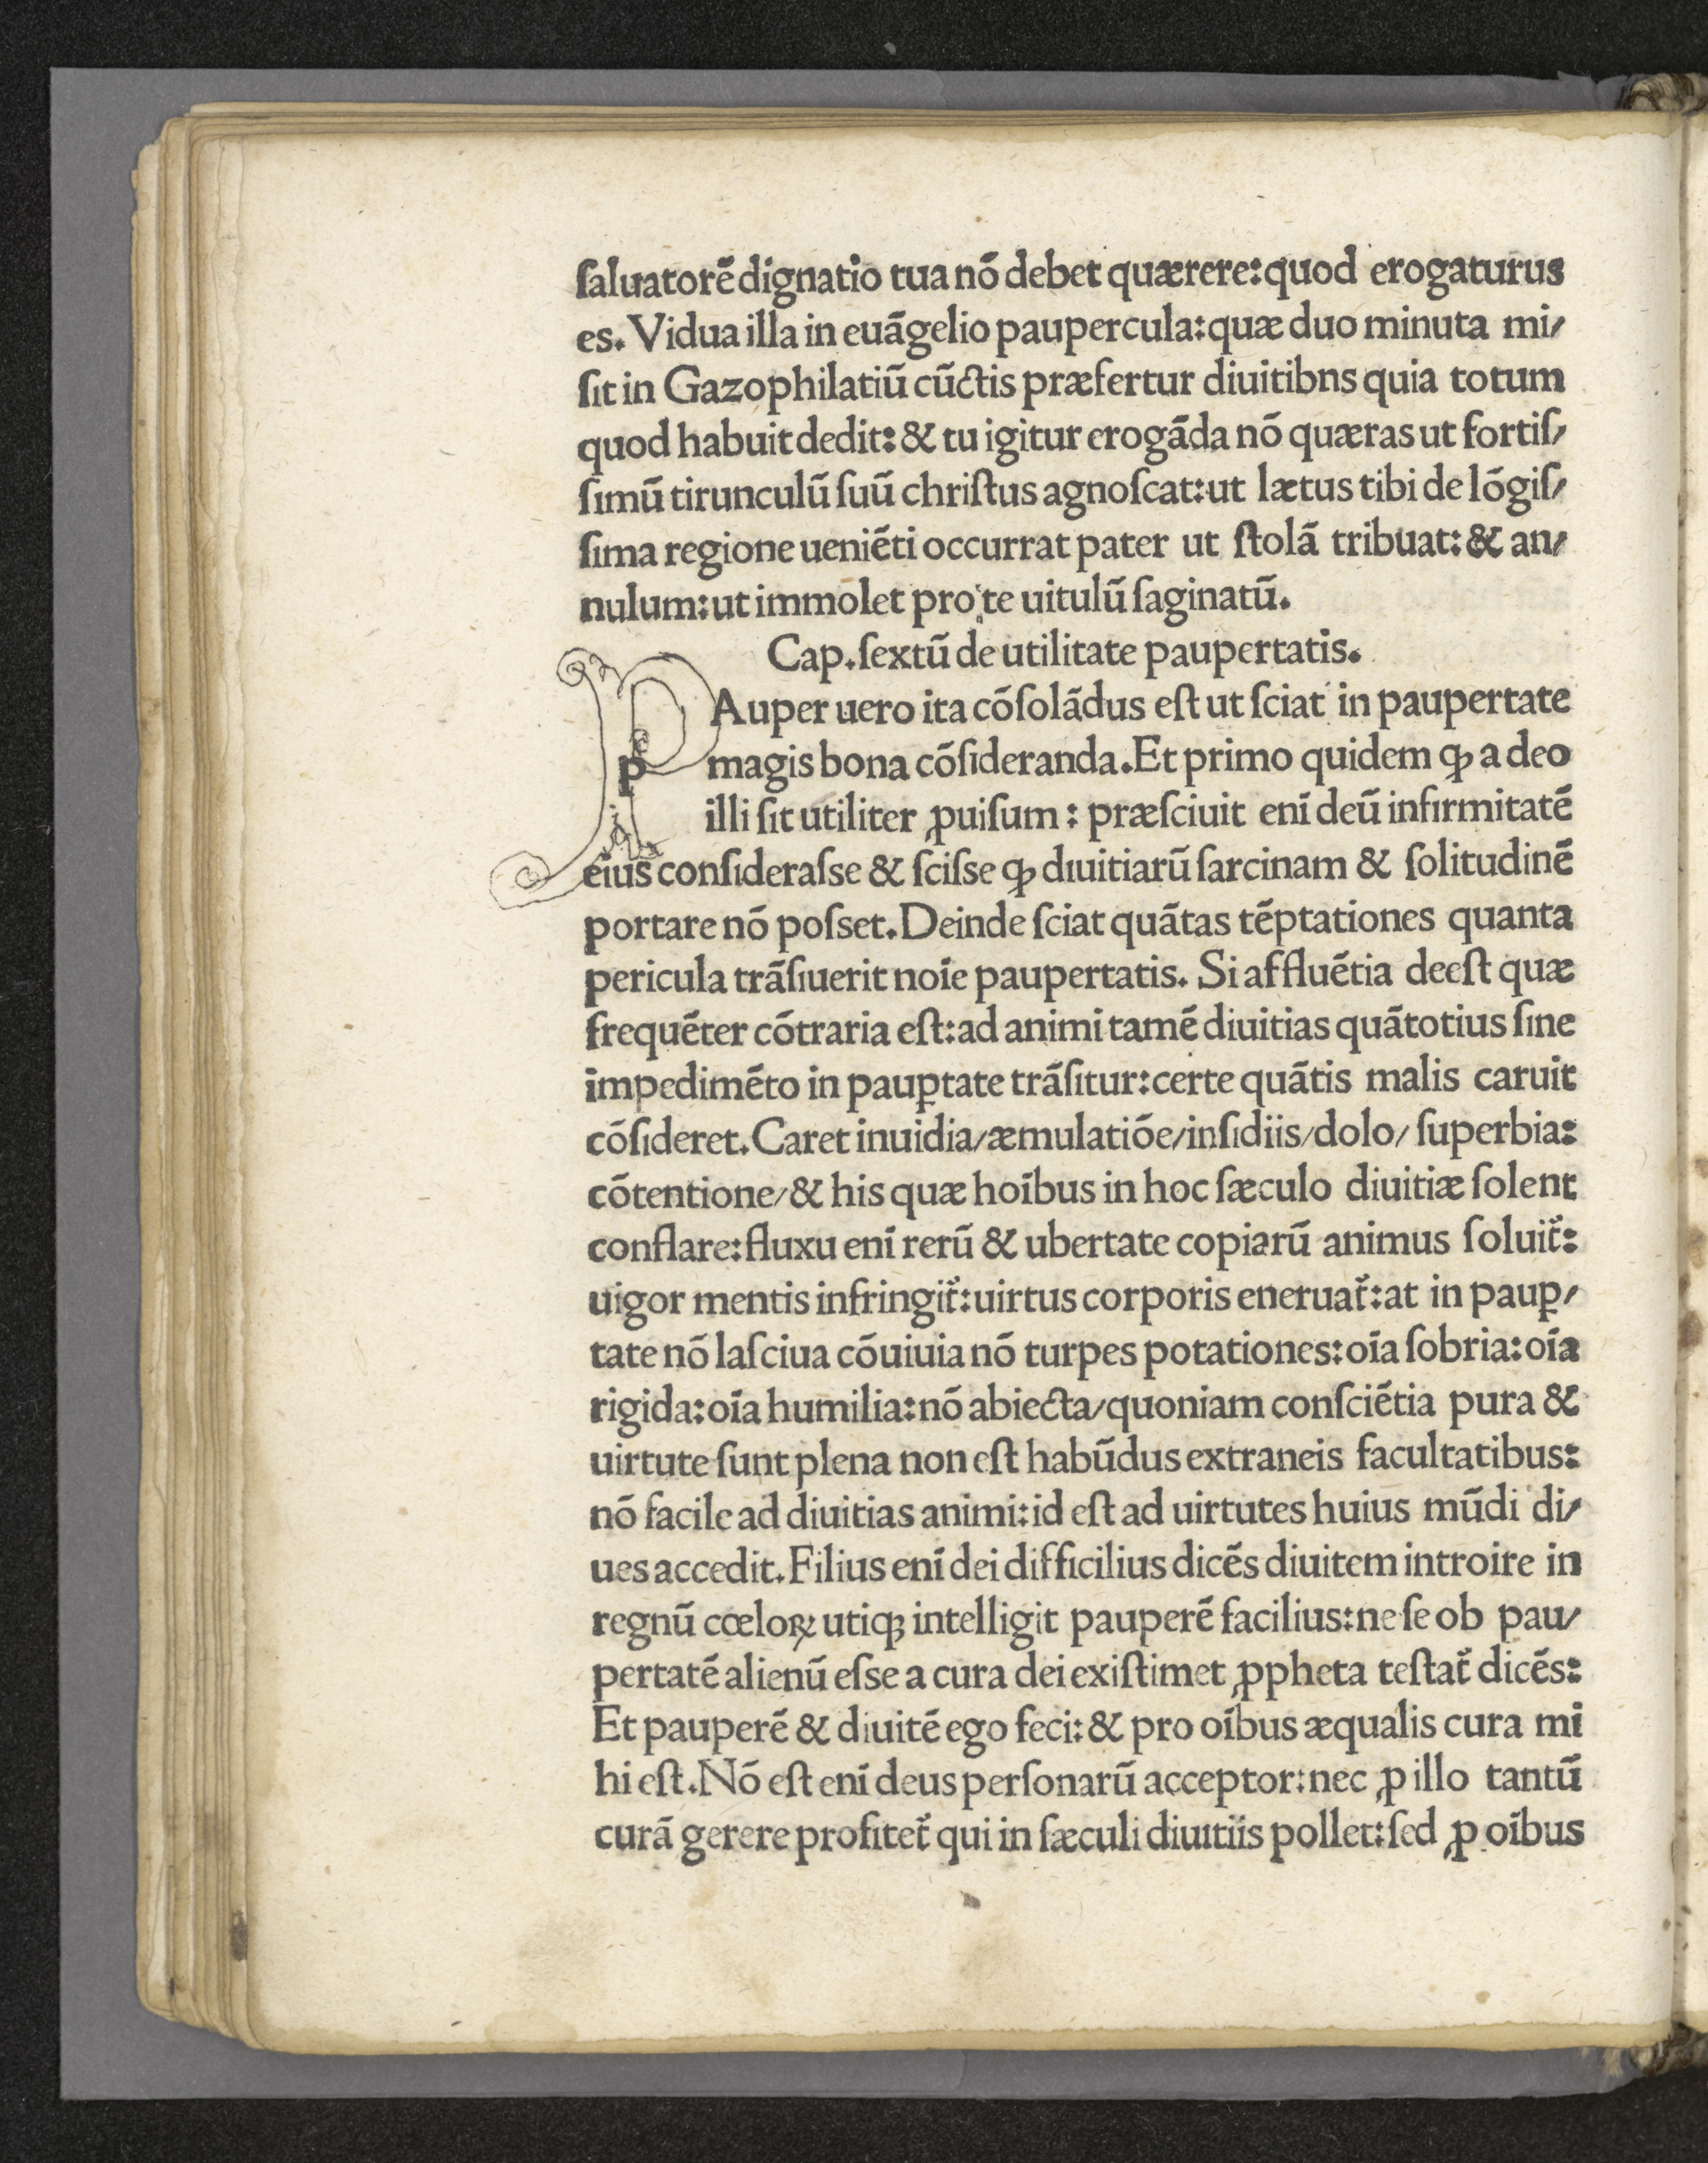 ſaluatorē dignatio tua nō debet quærere: quod erogaturus
es. Vidua illa in euāgelio paupercula: quæ duo minuta mi/
ſit in Gazophilatiū cūctis præfertur diuitibns quia totum
quod habuit dedit: & tu igitur erogāda nō quæras ut fortiſ/
ſimū tirunculū ſuū chriſtus agnoſcat: ut lætus tibi de lōgiſ/
ſima regione ueniēti occurrat pater ut ſtolā tribuat: & an/
nulum: ut immolet pro te uitulū ſaginatū.
Cap. ſextū de utilitate paupertatis.
PAuper uero ita cōſolādus eſt ut ſciat in paupertate
p magis bona cōſideranda. Et primo quidem ꝙ a deo
illi ſit utiliter ꝓuiſum: præſciuit enī deū infirmitatē
eius conſideraſse & ſciſse ꝙ diuitiarū ſarcinam & ſolitudinē
portare nō poſset. Deinde ſciat quātas tēptationes quanta
pericula trāſiuerit noīe paupertatis. Si affluētia deeſt quæ
frequēter cōtraria eſt: ad animi tamē diuitias quātotius ſine
impedimēto in pauꝑtate trāſitur: certe quātis malis caruit
cōſideret. Caret inuidia/æmulatiōe/inſidiis/dolo/ ſuperbia:
cōtentione/& his quæ hoībus in hoc ſæculo diuitiæ ſolent
conflare: fluxu enī rerū & ubertate copiarū animus ſoluit̃:
uigor mentis infringit̃: uirtus corporis eneruat̃: at in pauꝑ/
tate nō laſciua cōuiuia nō turpes potationes: oīa ſobria: oīa
rigida: oīa humilia: nō abiecta/quoniam conſciētia pura &
uirtute ſunt plena non eſt habūdus extraneis facultatibus:
nō facile ad diuitias animi: id eſt ad uirtutes huius mūdi di/
ues accedit. Filius enī dei difficilius dicēs diuitem introire in
regnū cœloꝝ utiqꝫ intelligit pauperē facilius: ne ſe ob pau/
pertatē alienū eſse a cura dei exiſtimet ꝓpheta teſtat̃ dicēs:
Et pauperē & diuitē ego feci: & pro oībus æqualis cura mi
hi eſt. Nō eſt enī deus perſonarū acceptor: nec ꝓ illo tantū
curā gerere profitet̃ qui in ſæculi diuitiis pollet: ſed ꝓ oībus